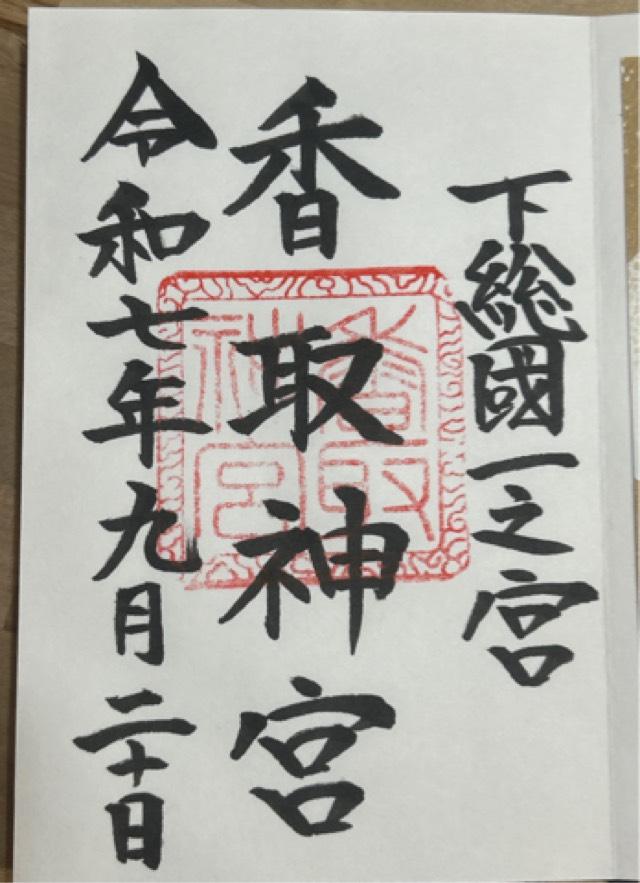 下総國一之宮
香取神宮
令和七年九月二十日
香取神宮